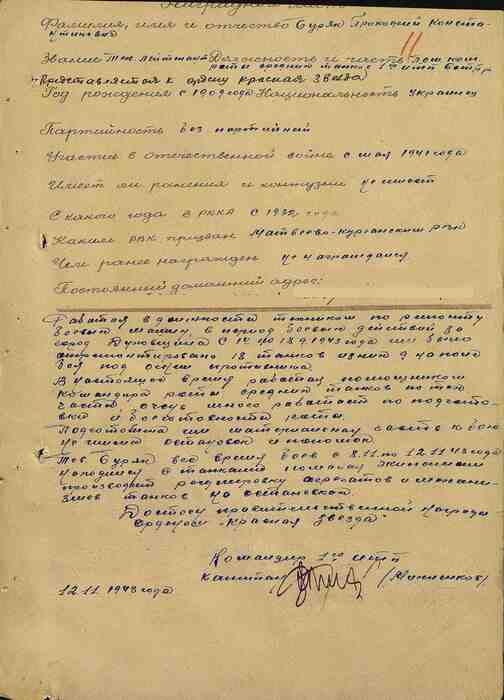 Наградной лист
Фамилия, имя и отчество Буряк Прокофий Конста-
нтинович
11
Звание тех. лейтенант Должность и часть пом. ком
роты средних танков 1го
Представляется к ордену Красная Звезда
Год рождения с 1909 года Национальность украинец
Партийность без партийный
Участие в отечественной войне с мая 1943 года
Имеет ли ранения и контузии не имеет
С какого года в РККА с 1932 года
Каким РВК призван Матвеево-Курганским рвк
Чем ранее награжден не награждался
Постоянный домашний адрес:
Работая в должности техником по ремонту
боевых машин, в период боевых действий за
город Духовщина с по 18.9.1943 года им было
отремонтировано 18 танков из них 9 на поле
боя под огнем противника.
В настоящее время работая помощником
командира роты средних танков по тех
части, очень много работает по подгото-
вке и боеготовности роты.
Подготовка им материальной части к бою
не имела остановок и поломок
Тов Буряк все время боев с 8.11 по 12.11 43 года
находился с танками помогая экипажам
производил регулировку агрегатов и механи-
змов танков на остановках.
Достоин правительственной награды
ордена "Красная Звезда"
Командир 1го
капитан
12.11 1943 года